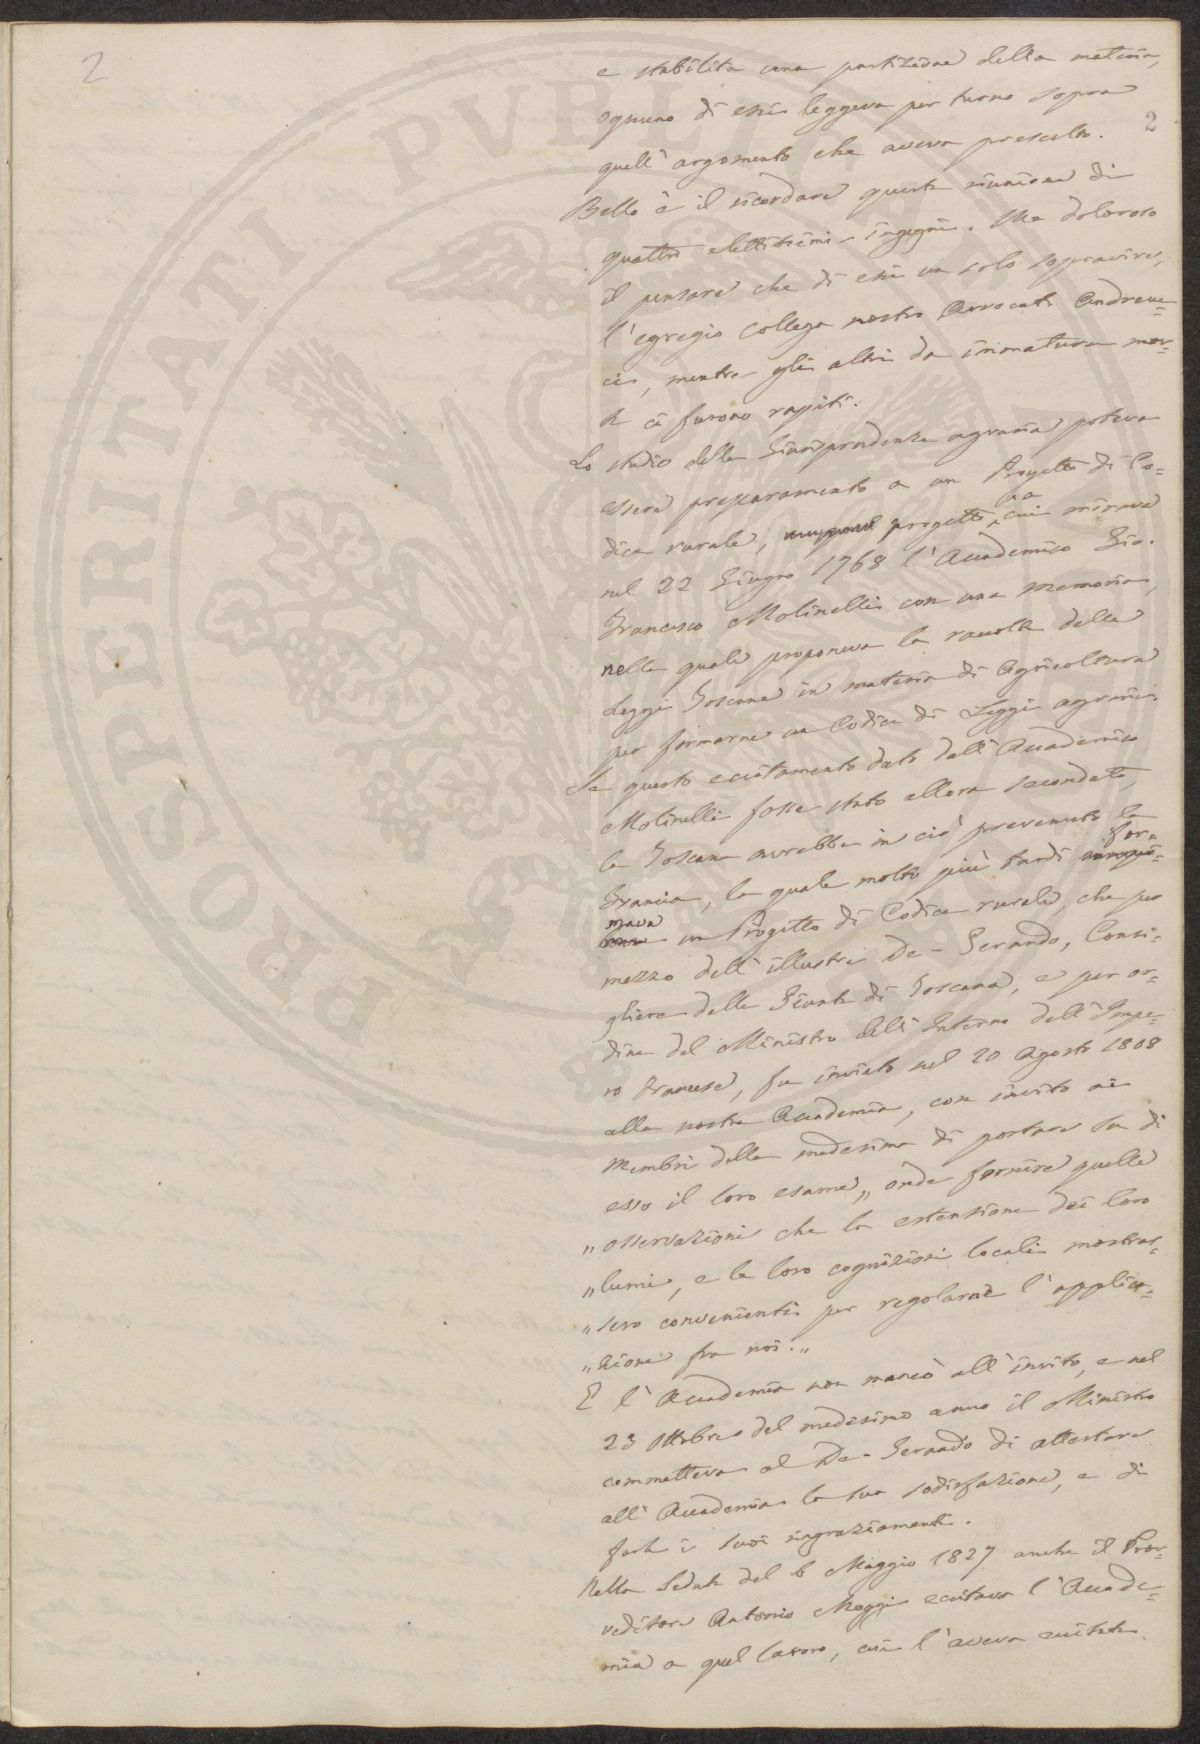 2
2
e stabilita una partizione della materia,
ognuno di essi leggeva per turno sopra
quell'argomento che aveva prescelto.
Bello è il ricordare questa riunione di
quattro elettissimi ingegni. Ma doloroso
il pensare che di essi un solo sopravive,
l'egregio Collega nostro Avvocato Andreuc=
ci, mentre gli altri da immatura mor=
te ci furono rapiti.
Lo studio della Giurisprudenza agraria poteva
essere preparamento a un Progetto di Co=
dice rurale, progetto, a cui mirava
nel 22 Giugno 1768 l'Accademico Gio.
Francesco Molinelli con una Memoria,
nella quale proponeva la raccolta delle
Leggi Toscane in materia di Agricoltura
per formarne un Codice di Leggi agrarie.
Se questo eccitamento dato dall'Accademico
Molinelli fosse stato allora secondato,
la Toscana avrebbe in ciò prevenuto la
Francia, la quale molto più tardi for=
mava un Progetto di Codice rurale, che per
mezzo dell'illustre De-Gerando, Consi=
gliere della Giunta di Toscana, e per or=
dine del Ministro dell'Interno dell'Impe=
ro Francese, fu inviato nel 20 Agosto 1808
alla nostra Accademia, con invito ai
Membri della medesima di portare su di
esso il loro esame, „ onde fornire quelle
„ osservazioni che la estensione dei loro
„ lumi, e le loro cognizioni locali mostras=
„ sero convenienti per regolarne l'applica=
„ zione fra noi. „
E l'Accademia non mancò all'invito, e nel
23 Ottobre del medesimo anno il Ministro
commetteva al De-Gerando di attestare
all'Accademia la sua sodisfazione, e di
farle i suoi ringraziamenti.
Nella Seduta del 6 Maggio 1827 anche il Prov=
veditore Antonio Moggi eccitava l'Accade=
mia a quel lavoro, cui l'aveva eccitata
PROSPERITATI PVBLICAE